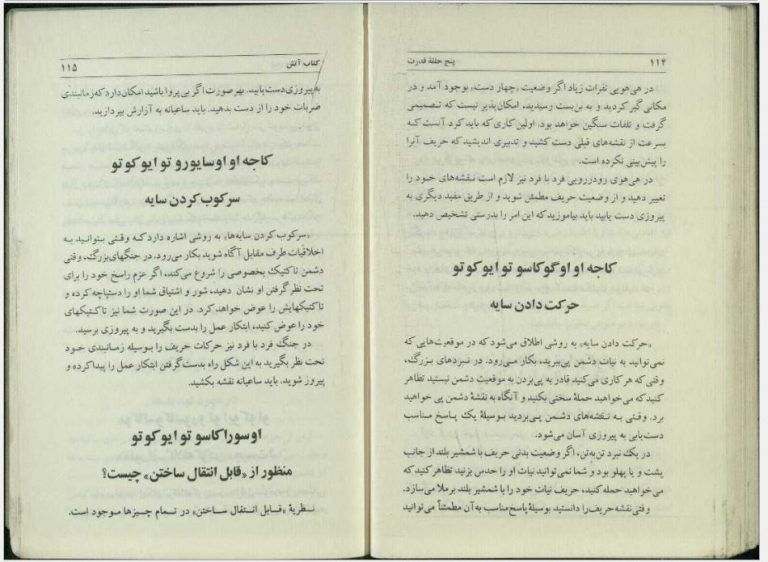 ۱۱۴
پنج حلقهٔ قدرت
در هی‌هویی نفرات زیاد اگر وضعیت «چهار دست» بوجود آمد و در
مکانی گیر کردید و به بن‌بست رسیدید، امکان‌پذیر نیست که تصمیمی
گرفت و تلفات سنگین خواهد بود. اولین کاری که باید کرد آنست که
بسرعت از نقشه‌های قبلی دست کشید و تدبیری اندیشید که حریف آنرا
را پیش‌بینی نکرده است.
در هی‌هوی رودررویی فرد با فرد نیز لازم است نقشه‌های خود را
تغییر دهید و از وضعیت حریف مطمئن شوید و از طریق مفید دیگری به
پیروزی دست یابید باید بیاموزید که این امر را بدرستی تشخیص دهید.
کاجه او اوگوکاسو تو ایوکوتو
حرکت دادن سایه
«حرکت دادن سایه» به روشی اطلاق می‌شود که در موقعیت‌هایی که
نمی‌توانید به نیات دشمن پی‌ببرید، بکار می‌رود. در نبردهای بزرگ،
وقتی که هر کاری می‌کنید قادر به پی‌بردن به موقعیت دشمن نیستید تظاهر
کنید که می‌خواهید حملهٔ سختی بکنید و آنگاه به نقشهٔ دشمن پی خواهید
برد. وقتی به نقشه‌های دشمن پی‌بردید بوسیلهٔ یک پاسخ مناسب
دست‌یابی به پیروزی آسان می‌شود.
در یک نبرد تن‌به‌تن، اگر وضعیت بدنی حریف با شمشیر بلند از جانب
پشت و یا پهلو بود و شما نمی‌توانید نیات او را حدس بزنید تظاهر کنید که
می‌خواهید حمله کنید، حریف نیات خود را با شمشیر بلند برملا می‌سازد.
وقتی نقشه حریف را دانستید بوسیلهٔ پاسخ مناسب به آن مطمئناً می‌توانید
کتاب آتش
۱۱۵
به پیروزی دست یابید. بهرصورت اگر بی‌پروا باشید امکان دارد که زمانبندی
ضربات خود را از دست بدهید. باید ساعیانه به آزارش بپردازید.
کاجه او اوسایورو تو ایوکوتو
سرکوب کردن سایه
«سرکوب کردن سایه» به روشی اشاره دارد که وقتی بتوانید به
اخلاقیات طرف مقابل آگاه شوید بکار می‌رود. در جنگهای بزرگ، وقتی
دشمن تاکتیک بخصوصی را شروع می‌کند، اگر عزم راسخ خود را برای
تحت نظر گرفتن او نشان دهید، شور و اشتیاق شما او را دستپاچه کرده و
تاکتیکهایش را عوض خواهد کرد. در این صورت شما نیز تاکتیکهای
خود را عوض کنید، ابتکار عمل را بدست بگیرید و به پیروزی برسید.
در جنگ فرد با فرد نیز حرکات حریف را بوسیله زمانبندی خود
تحت نظر بگیرید به این شکل راه بدست‌گرفتن ابتکار عمل را پیدا کرده و
پیروز شوید. باید ساعیانه نقشه بکشید.
اوسوراکاسو تو ایوکوتو
منظور از «قابل انتقال ساختن» چیست؟
نظریهٔ «قابل انتقال ساختن» در تمام چیزها موجود است.